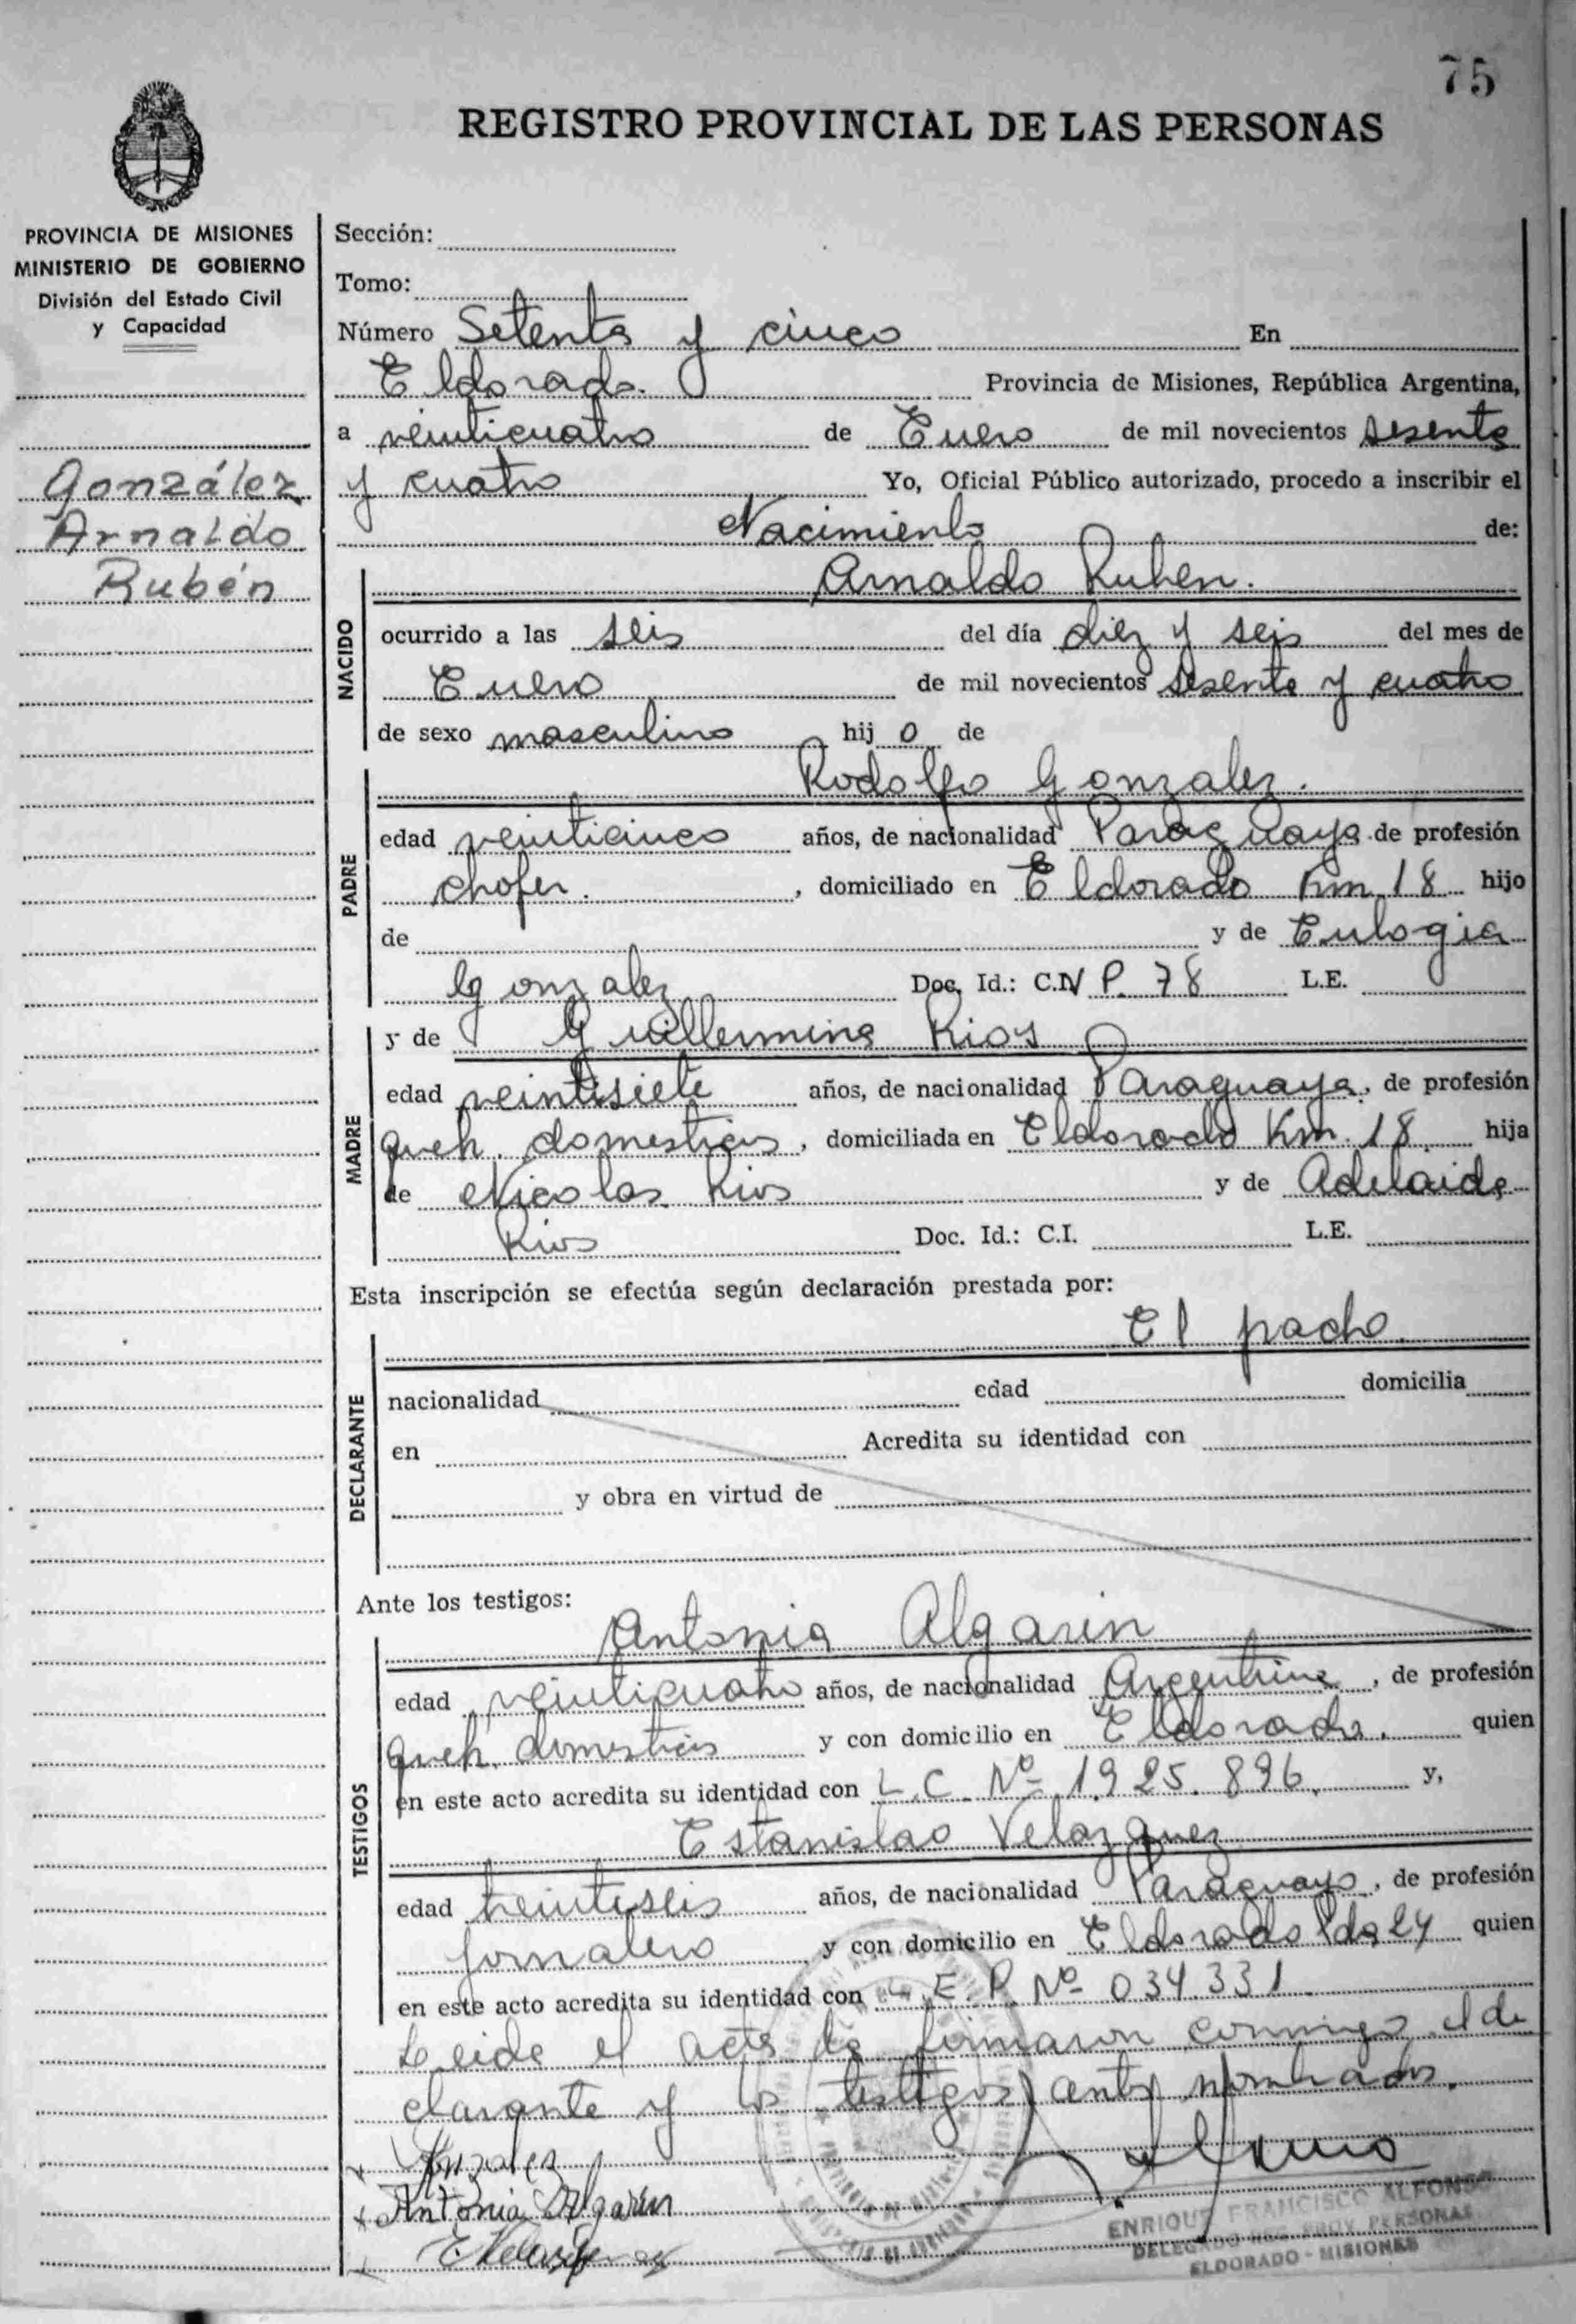 75
REGISTRO PROVINCIAL DE LAS PERSONAS
PROVINCIA DE MISIONES
MINISTERIO DE GOBIERNO
División del Estado Civil
y Capacidad
González
Arnaldo
Rubén
Sección:
Tomo:
Número Setenta y cinco En
Eldorado. Provincia de Misiones, República Argentina,
a veinticuatro de Enero de mil novecientos sesenta
y cuatro Yo, Oficial Público autorizado, procedo a inscribir el
Nacimiento de:
Arnaldo Ruben.
NACIDO
ocurrido a las seis del día diez y seis del mes de
Enero de mil novecientos sesenta y cuatro
de sexo masculino hij o de
PADRE
Rodolfo Gonzalez.
edad veinticinco años, de nacionalidad Paraguaya de profesión
chofer. , domiciliado en Eldorado Km 18 hijo
de y de Eulogia
Gonzalez Doc. Id.: C.N P. 78 L.E.
MADRE
y de Guillermina Rios
edad veintisiete años, de nacionalidad Paraguaya, de profesión
queh. domesticos, domiciliada en Eldorado Km. 18 hija
de Nicolas Rios y de Adelaida
Rios Doc. Id.: C.I. L.E.
Esta inscripción se efectúa según declaración prestada por:
El padre
DECLARANTE
nacionalidad edad domicilia
en Acredita su identidad con
y obra en virtud de
Ante los testigos:
TESTIGOS
Antonia Algarin
edad veinticuatro años, de nacionalidad Argentina, de profesión
queh. domesticos y con domicilio en Eldorado. quien
en este acto acredita su identidad con L.C. Nº 1.925.896. y,
Estanislao Velazquez
edad treintiseis años, de nacionalidad Paraguayo, de profesión
jornalero y con domicilio en Eldorado 24 quien
en este acto acredita su identidad con E. P. Nº 034.331
Leida el acta la firmaron conmigo el de
clarante y los testigos antes nombrados.
Gonzalez
Antonia Algarin
ENRIQUE FRANCISCO ALFONSO
DELEGADO REG. PROV. PERSONAS
ELDORADO - MISIONES